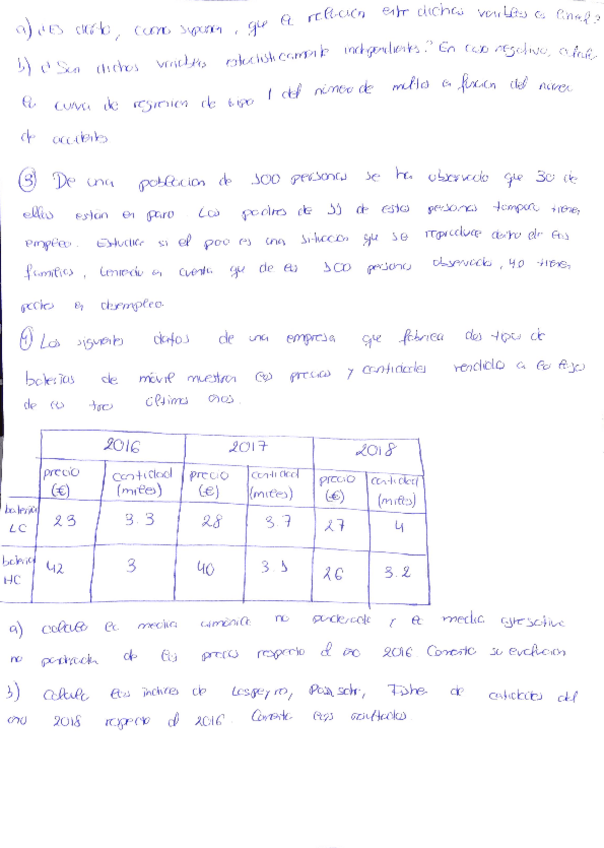 a) ¿Es cierto, como suponen, que la relación entre dichas variables es lineal?
b) ¿Son dichas variables estadísticamente independientes? En caso negativo,
la curva de regresión de tipo I del número de multas en función del número
de accidentes
③ De una población de 100 personas se ha observado que 30 de
ellas están en paro. Los padres de de estas personas tampoco tienen
empleo. Estudiar si el paro es una situación que se reproduce dentro de las
familias, teniendo en cuenta que de las 100 personas observadas, 40 tienen
padres en desempleo.
④ Los siguientes datos de una empresa que fabrica dos tipos de
baterías de móvil muestran los precios y cantidades vendidas a lo largo
de los tres últimos años.
2016 2017 2018
precio (€) cantidad (miles) precio (€) cantidad (miles) precio (€) cantidad (miles)
batería LC 23 3.3 28 3.7 27 4
batería HC 42 3 40 26 3.2
a) Calcule la media armónica no ponderada y la media agregativa
no ponderada de los precios respecto al año 2016. Comente su evolución
b) Calcule los índices de Laspeyres, Paasche, Fisher de cantidades del
año 2018 respecto al 2016. Comente los resultados.